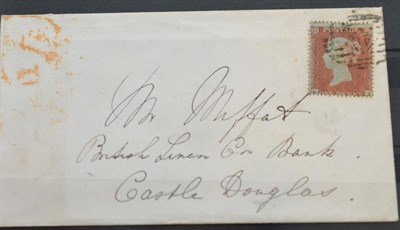 POSTAGE
Mr Moffat
British Linen Co Bank.
Castle Douglas.